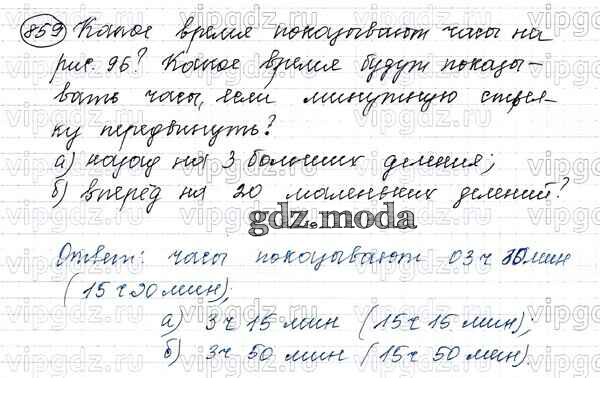 859 Какое время показывают часы на
рис. 96? Какое время будут показы-
вать часы, если минутную стрел-
ку передвинуть?
а) назад на 3 больших деления;
б) вперёд на 20 маленьких делений?
gdz.moda
Ответ: часы показывают 03 ч 30 мин
(15 ч 30 мин);
а) 3 ч 15 мин (15 ч 15 мин);
б) 3 ч 50 мин (15 ч 50 мин).
vipgdz.ru